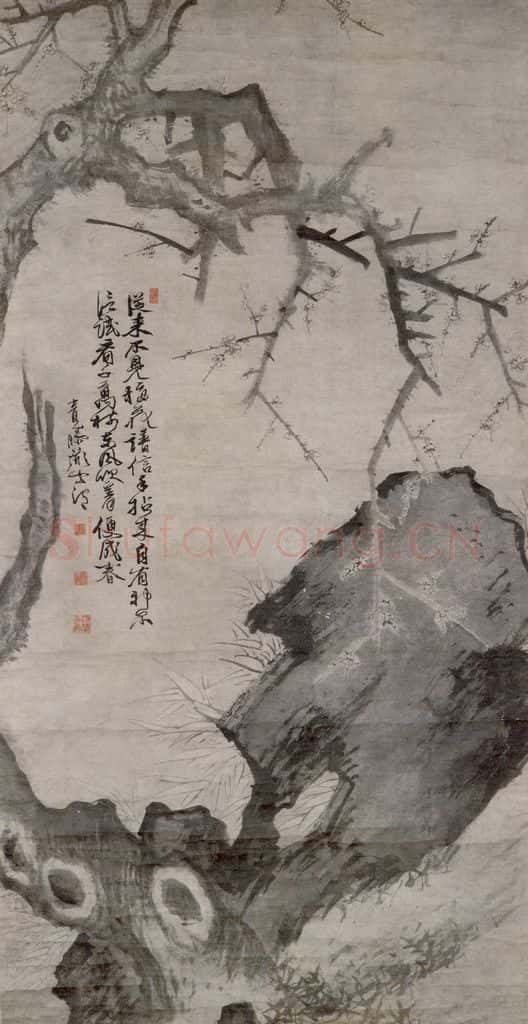 從来不見梅花譜信手拈来自有神不
信試看千萬樹東風吹着便成春
青藤道士渭
Shufawang.CN